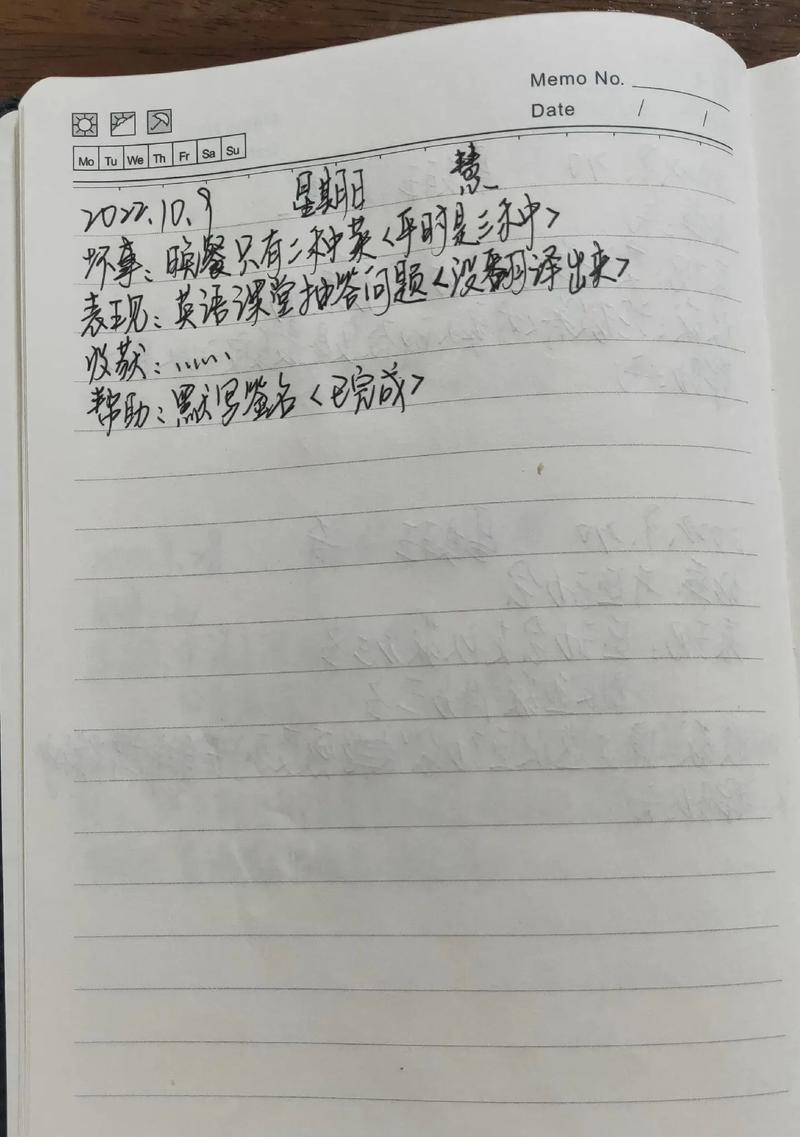 Memo No.
Date / /
Mo Tu We Th Fr Sa Su
2022.10.9 星期日 慧
坏事：晚餐只有二种菜<平时是三种>
表现：英语课堂抽答问题<没翻译出来>
收获：……
帮助：默写签名<已完成>